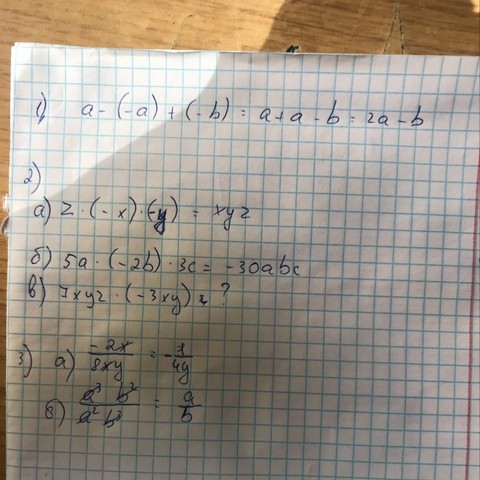 1) a - (-a) + (-b) = a + a - b = 2a - b
2)
а) z · (-x) · (-y) = xyz
б) 5a · (-2b) · 3c = -30abc
в) 7xyz · (-3xy) = ?
3) а) -2x / 8xy = - 1 / 4y
б) a³ b² / a² b³ = a / b